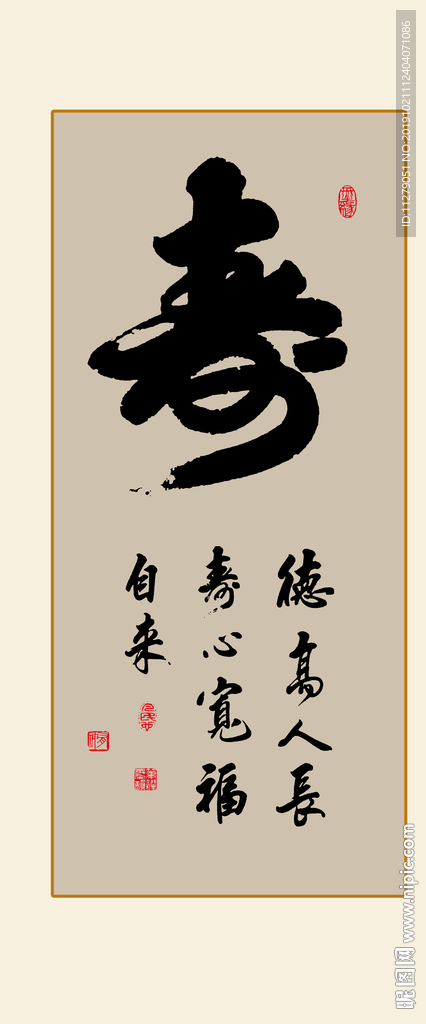 寿
德高人長
寿心寬福
自来
ID:11279051 NO:20191021112404071086
昵图网 www.nipic.com